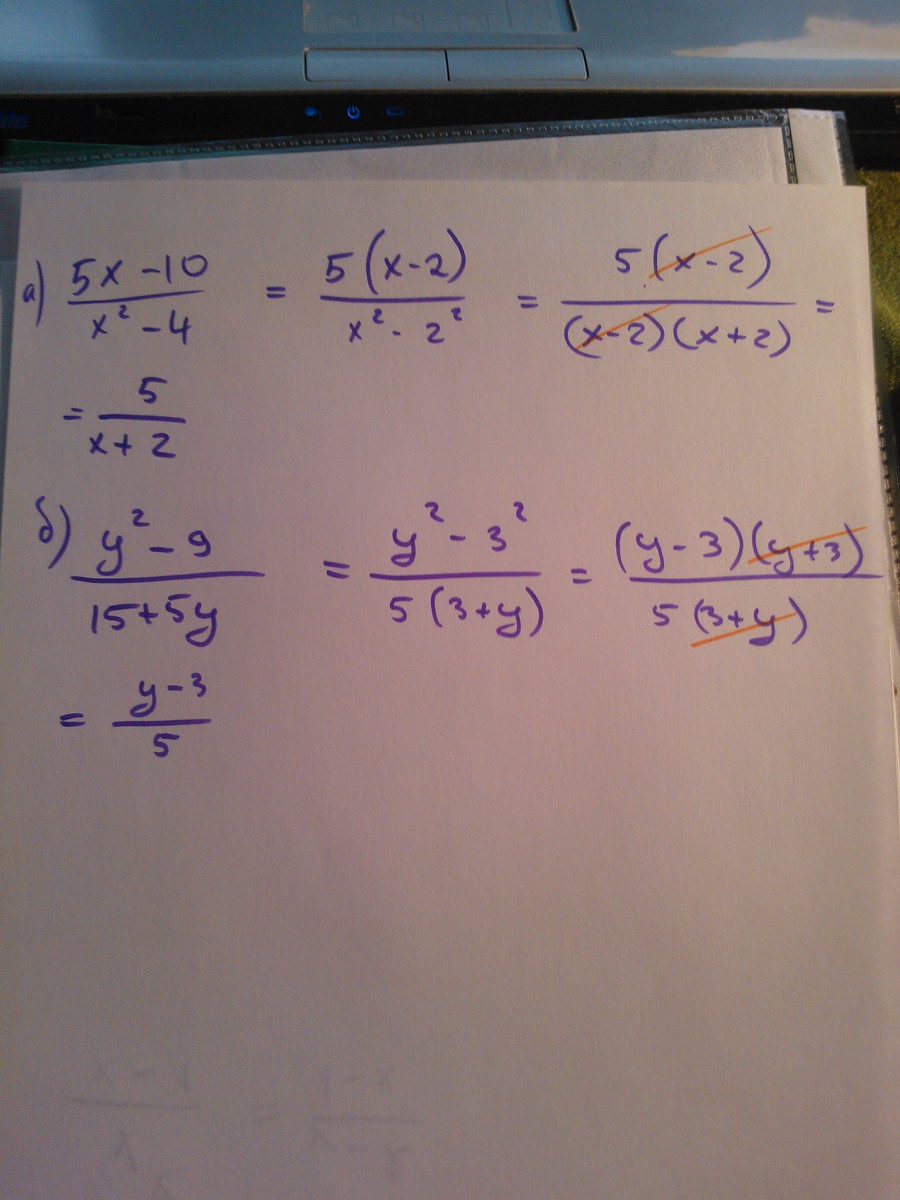 ite
а) (5x-10)/(x²-4) = 5(x-2)/(x²-2²) = 5(x-2)/((x-2)(x+2)) =
= 5/(x+2)
б) (y²-9)/(15+5y) = (y²-3²)/(5(3+y)) = (y-3)(y+3)/(5(3+y))
= (y-3)/5